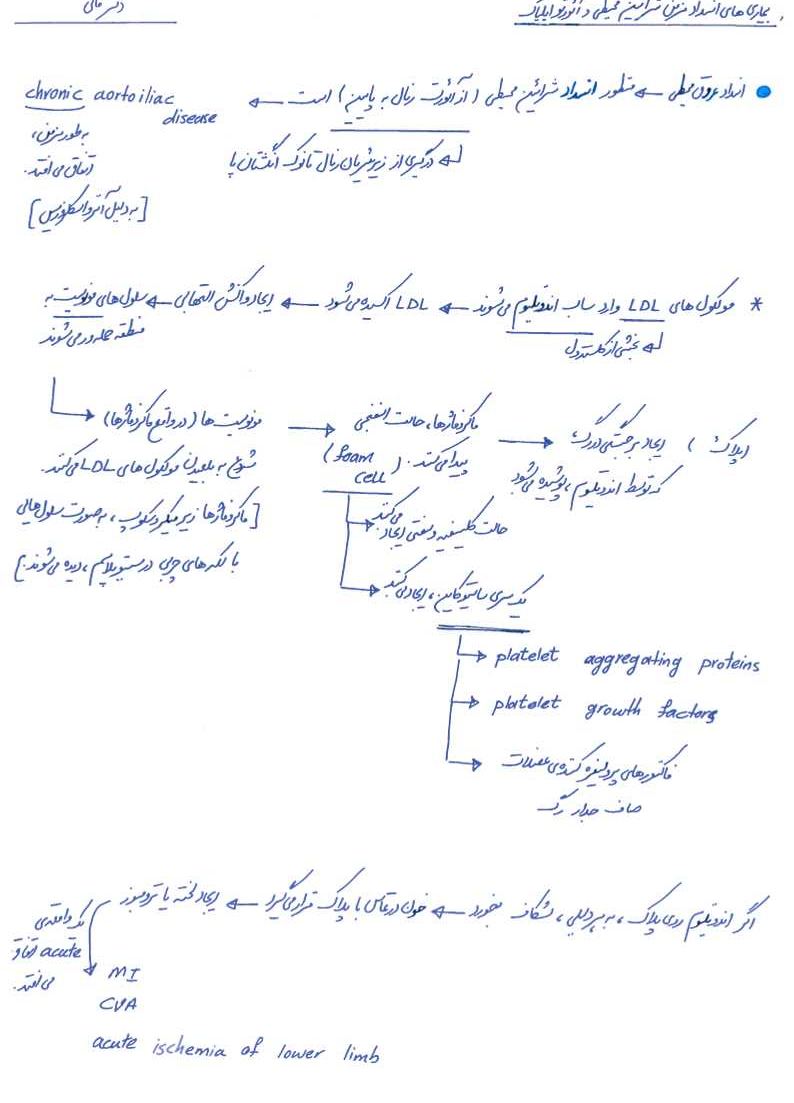 بیماری های انسداد مزمن شرایین محیطی و آئورتوایلیاک
دکتر
● انسداد عروق محیطی ← منظور انسداد شرائین محیطی (از آئورت رنال به پایین) است ← chronic aortoiliac disease
به طور مزمن،
اتفاق می افتد.
[به دلیل آترواسکلروزیس]
↲ درگیری از زیر شریان رنال تا نوک انگشتان پا
* مولکول های LDL وارد ساب اندوتلیوم می شوند ← LDL اکسیده می شود ← ایجاد واکنش التهابی ← سلول های مونوسیت به
منطقه حمله ور می شوند
↲ بخشی از کلسترول
مونوسیت ها (در واقع ماکروفاژها)
شروع به بلعیدن مولکول های LDL می کنند.
[ماکروفاژها زیر میکروسکوپ، به صورت سلول هایی
با لکه های چربی در سیتوپلاسم، دیده می شوند.]
→ ماکروفاژها، حالت اسفنجی
پیدا می کنند. (foam cell)
→ ایجاد برجستگی در رگ (پلاک)
که توسط اندوتلیوم، پوشیده می شود
حالت کلسیفیه و سفتی ایجاد می کنند
یک سری سایتوکاین، ایجاد می کنند
→ platelet aggregating proteins
→ platelet growth factors
→ فاکتورهای پرولیفره کننده ی عضلات
صاف جدار رگ
اگر اندوتلیوم روی پلاک، به هر دلیلی، شکاف بخورد ← خون در تماس با پلاک قرار می گیرد ← ایجاد لخته یا ترومبوز
یک واقعه ی
acute اتفاق
می افتد.
MI
CVA
acute ischemia of lower limb